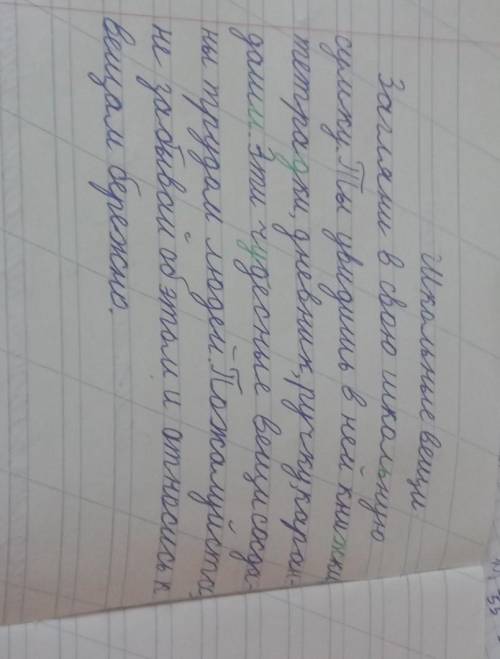 Школьные вещи
Загляни в свою школьную
сумку. Ты увидишь в ней книжки
тетрадки, дневник, ручку, каран-
даши. Эти чудесные вещи созда-
ны трудам людей. Пожалуйста,
не забывай об этом и относись к
вещам бережно.